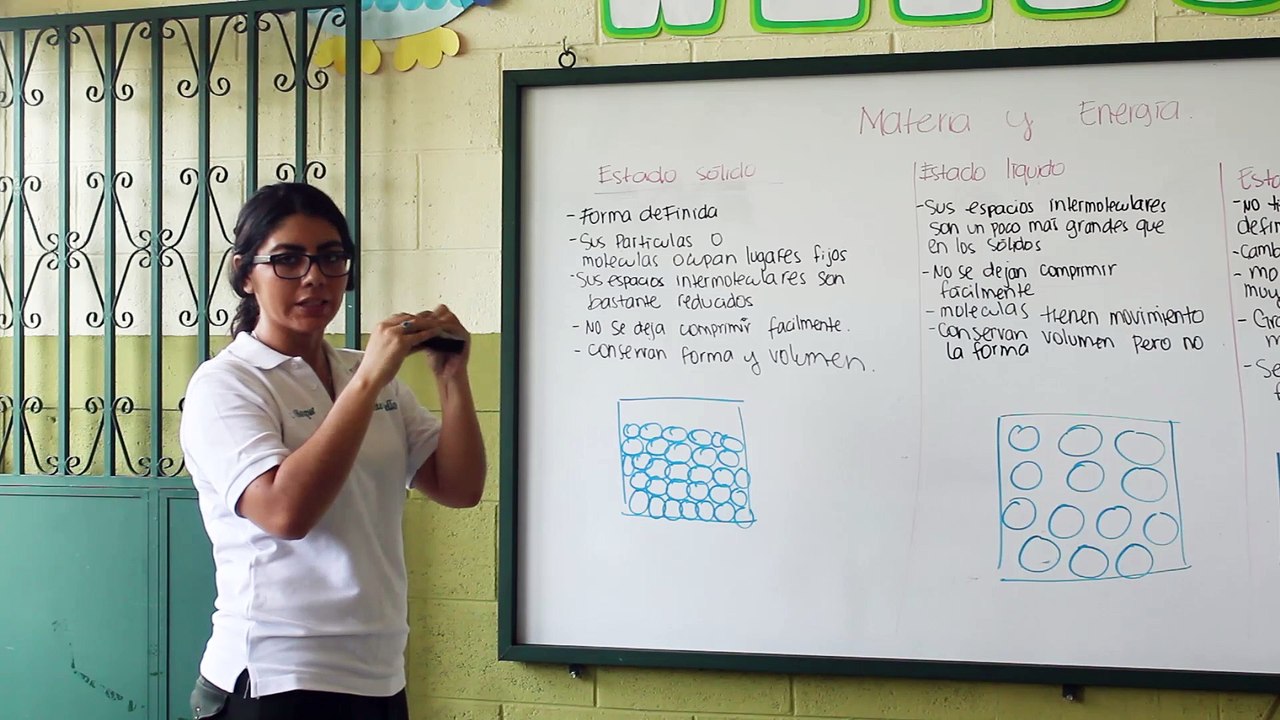 Materia y Energía.
Estado sólido
- Forma definida
- Sus Particulas o
moleculas ocupan lugares fijos
- Sus espacios intermoleculares son
bastante reducidos
- No se deja comprimir facilmente.
- Conservan forma y volumen.
Estado líquido
- Sus espacios intermoleculares
son un poco más grandes que
en los sólidos
- No se dejan comprimir
facilmente
- moleculas tienen movimiento
- Conservan volumen pero no
la forma
Esta
- No ti
defin
- Camb
- mo
muy
- Gra
m
- Se